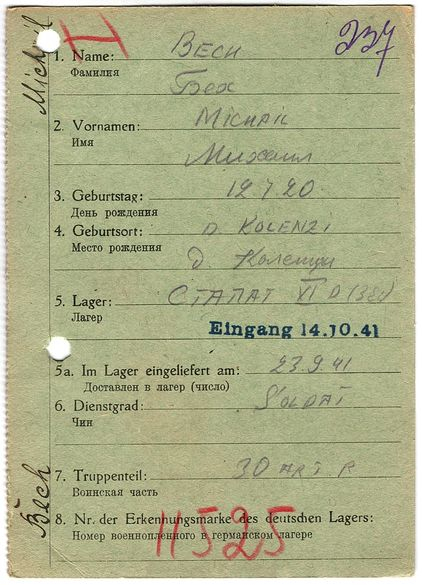 I
237
Michail
1. Name: BECH
Фамилия
Бех
2. Vornamen: MICHAIL
Имя
Михаил
3. Geburtstag: 12.7.20.
День рождения
4. Geburtsort: D. KOLENZI
Место рождения
д Коленцы
5. Lager: СТАЛАГ VI D
Лагер
Eingang 14.10.41
5a. Im Lager eingeliefert am: 23.9.41
Доставлен в лагер (число)
6. Dienstgrad: SOLDAT
Чин
7. Truppenteil: 30 ART. R
Воинская часть
8. Nr. der Erkenhungsmarke des deutschen Lagers:
Номер военнопленного в германском лагере
11525
Bech